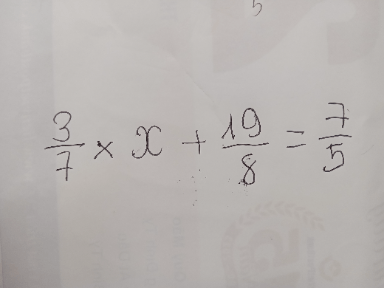 3/7 × x + 19/8 = 7/5